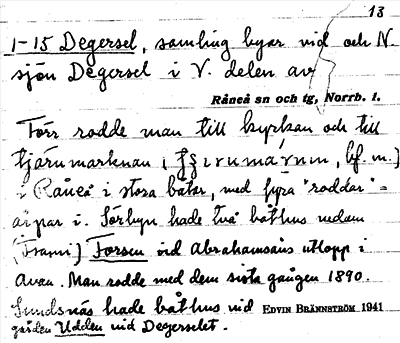 13
1-15 Degersel, samling byar vid och N.
sjön Degersel i V. delen av
Råneå sn och tg, Norrb. l.
Förr rodde man till kyrkan och till
tjärumarknan, bf. m.]
i Råneå i stora båtar, med fyra "roddar" =
årpar i. Sörbyn hade två båthus nedom
(Frami) Forsen vid Abrahamsåns utlopp i
Avan. Man rodde med dem sista gången 1890.
Sundsnäs hade båthus vid EDVIN BRÄNNSTRÖM 1941
gården Udden vid Degerselet.